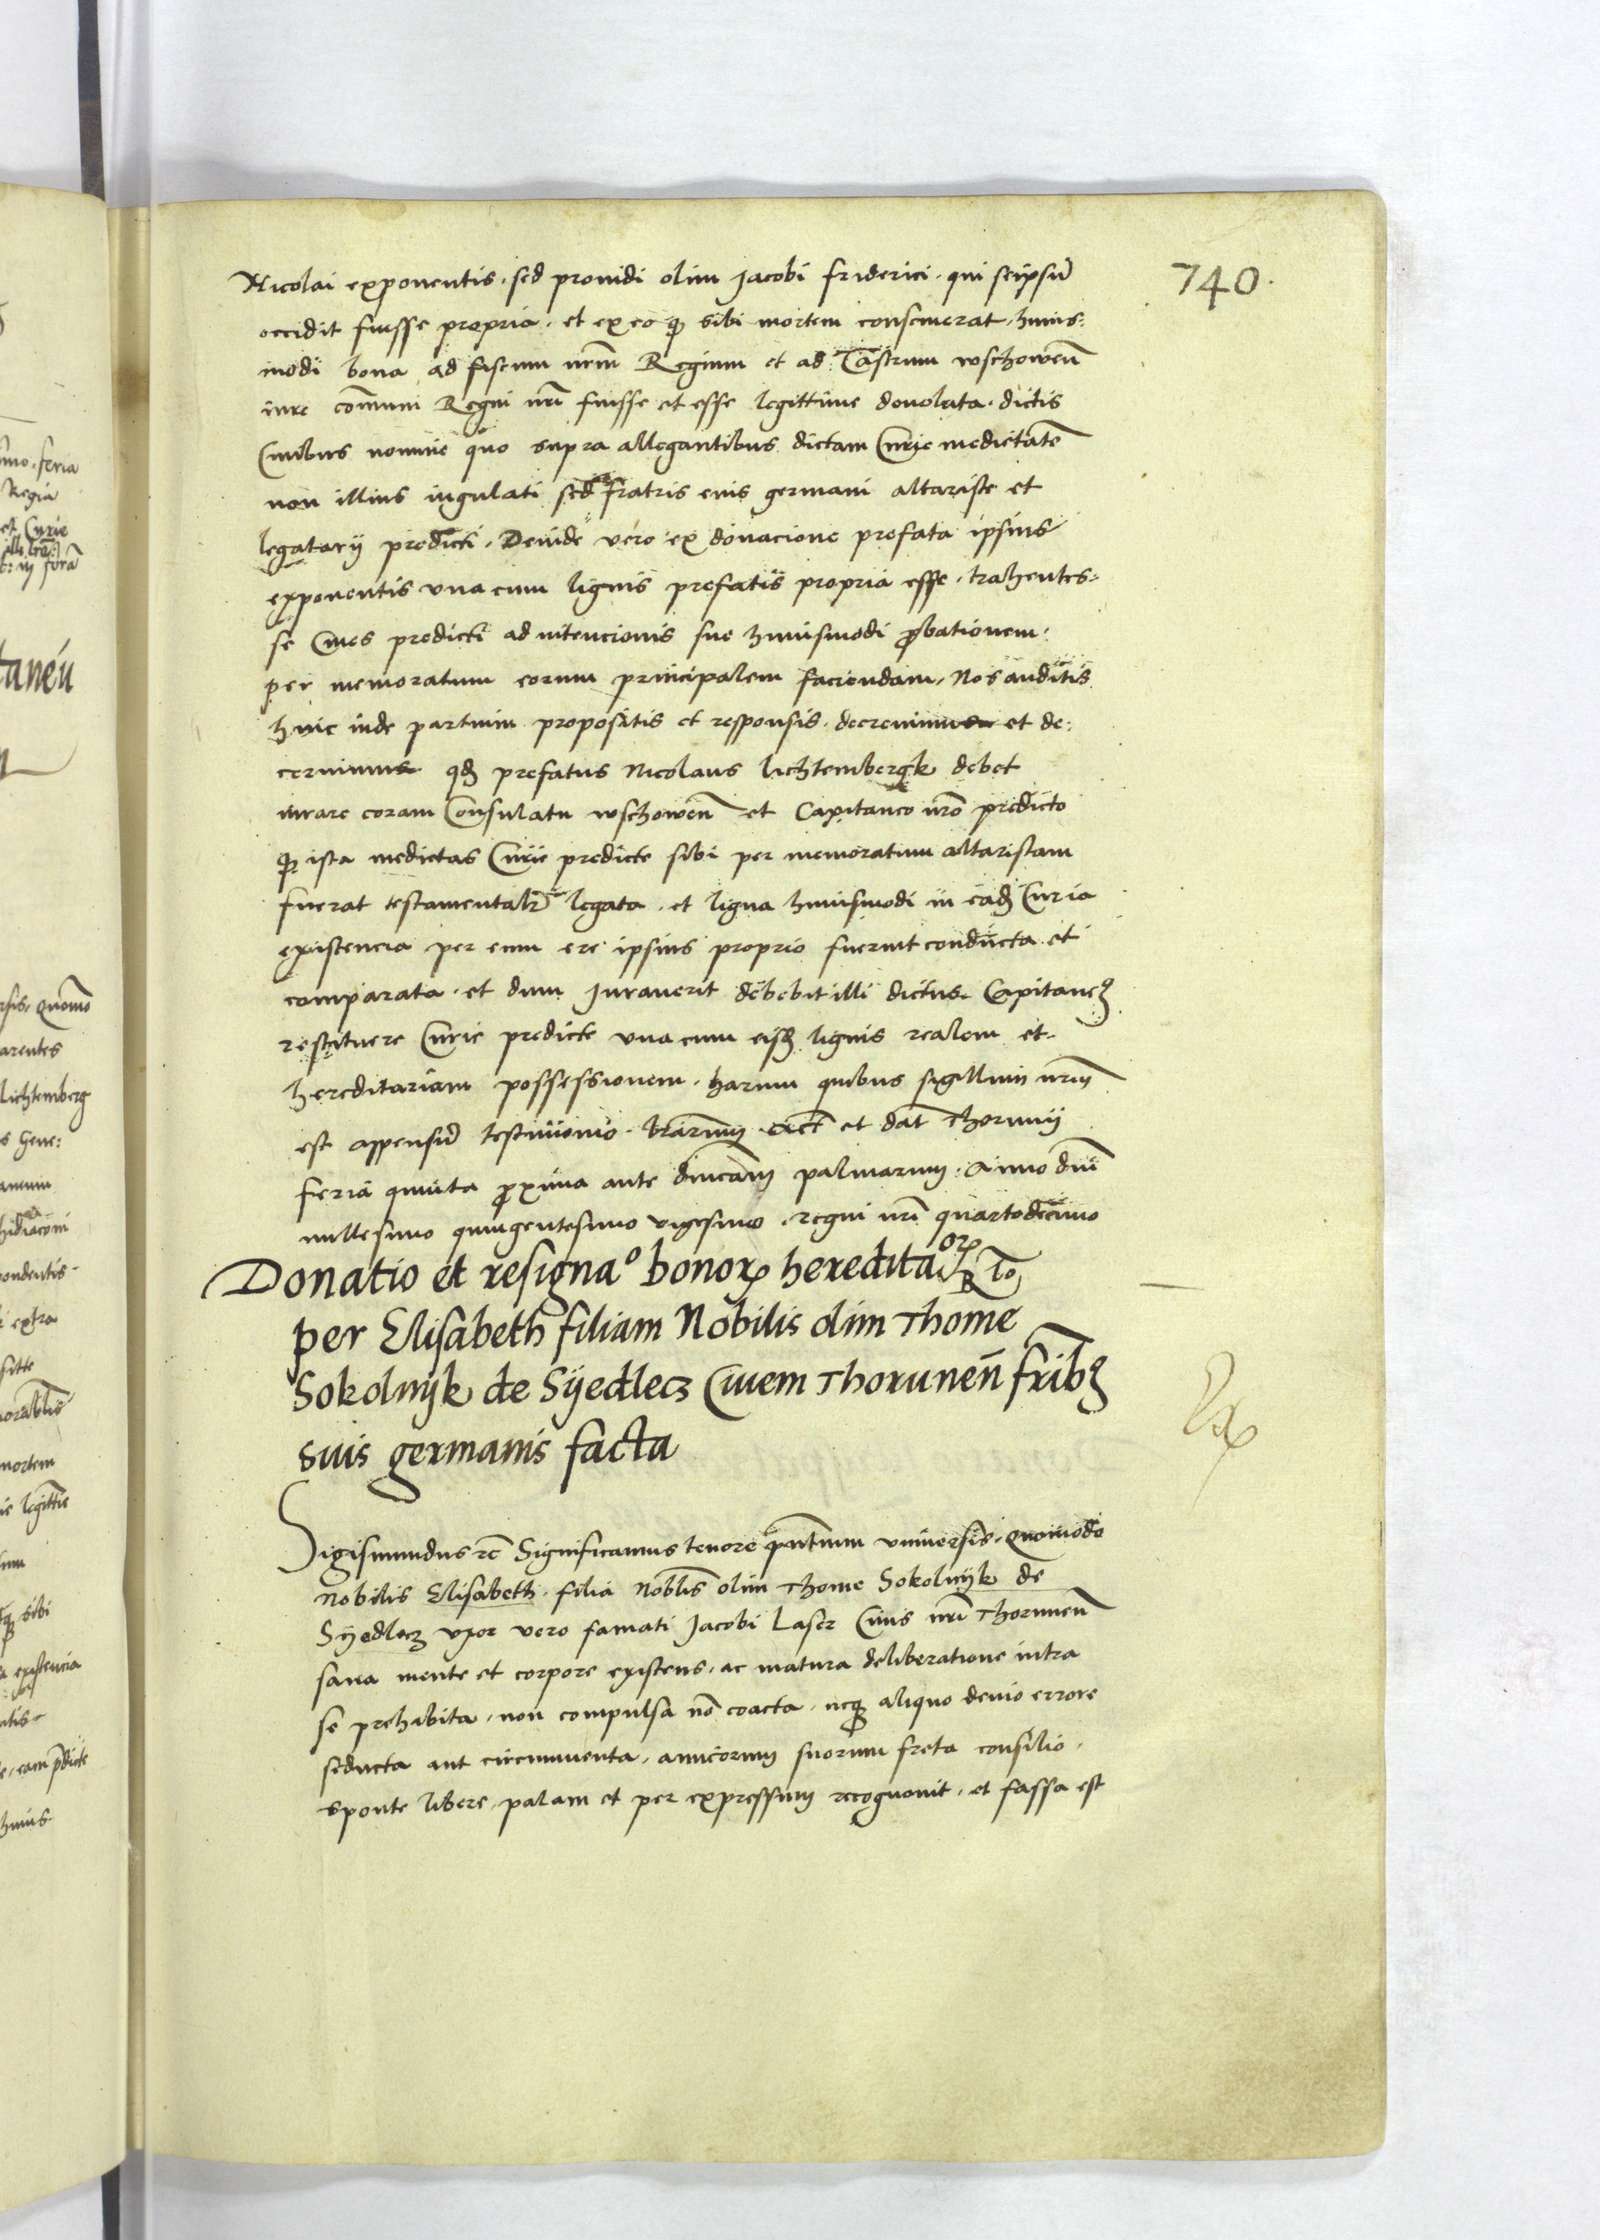 740.
Nicolai exponentis, sed prouidi olim Jacobi friderici, qui seipsū
occidit fuisse propria, et ex eo qꝫ sibi mortem consciuerat, huius-
modi bona ad fiscum nr̄m Regium et ad Castrum wschowen̄
iure cōmuni Regni nr̄i fuisse et esse legittime deuoluta. dictis
Ciuibus nomine quo supra allegantibus dictam Curie medietatē
non illius iugulati sed fratris eius germani altariste et
legatarij predicti, Deinde vero ex donacione prefata ipsius
exponentis vna cum lignis prefatis propria esse, trahentes-
se Ciues predicti ad intencionis sue huiusmodi ꝓbationem
per memoratum eorum principalem faciendam, Nos auditis
hinc inde partium propositis et responsis, decreuimus et de-
cernimus qđ prefatus Nicolaus lichtembergk debet
iurare coram Consulatu wschowen̄ et Capitaneo nr̄o predicto
qꝫ ista medietas Curie predicte sibi per memoratum altaristam
fuerat testamentalr̄ legata, et ligna huiusmodi in eadē Curia
existencia per eum ere ipsius proprio fuerint conducta et
comparata. et dum Jurauerit debebit illi dictus Capitaneꝰ
restituere Curie predicte vna cum eisdē lignis realem et
hereditariam possessionem. harum quibus sigillum nr̄m
est appensū testimonio lr̄arum. Act̄ et dat̄ Thorunij
feria quinta ꝓxima ante dn̄icam palmarum. Anno dn̄i
millesimo quingentesimo vigesimo, regni nr̄i quartodecimo
Donatio et resigna° bonorꝝ hereditaorꝝ
per Elisabeth filiam Nobilis olim Thome
Sokolnyk de Syedlecz Ciuem Thorunen̄ fribꝰ
suis germanis facta
Sigismundus rc̄ Significamus tenore pn̄tium vniuersis, Quomodo
Nobilis Elisabeth, filia Nobl̄is olim Thome Sokolnyk de
Syedlecz vxor vero famati Jacobi Laser Ciuis nr̄i Thorunen̄
sana mente et corpore existens, ac matura deliberatione intra
se prehabita, non compulsa nō coacta, neqꝫ aliquo deuio errore
seducta aut circumuenta, amicorum suorum freta consilio,
sponte libere, palam et per expressum recognouit, et fassa est